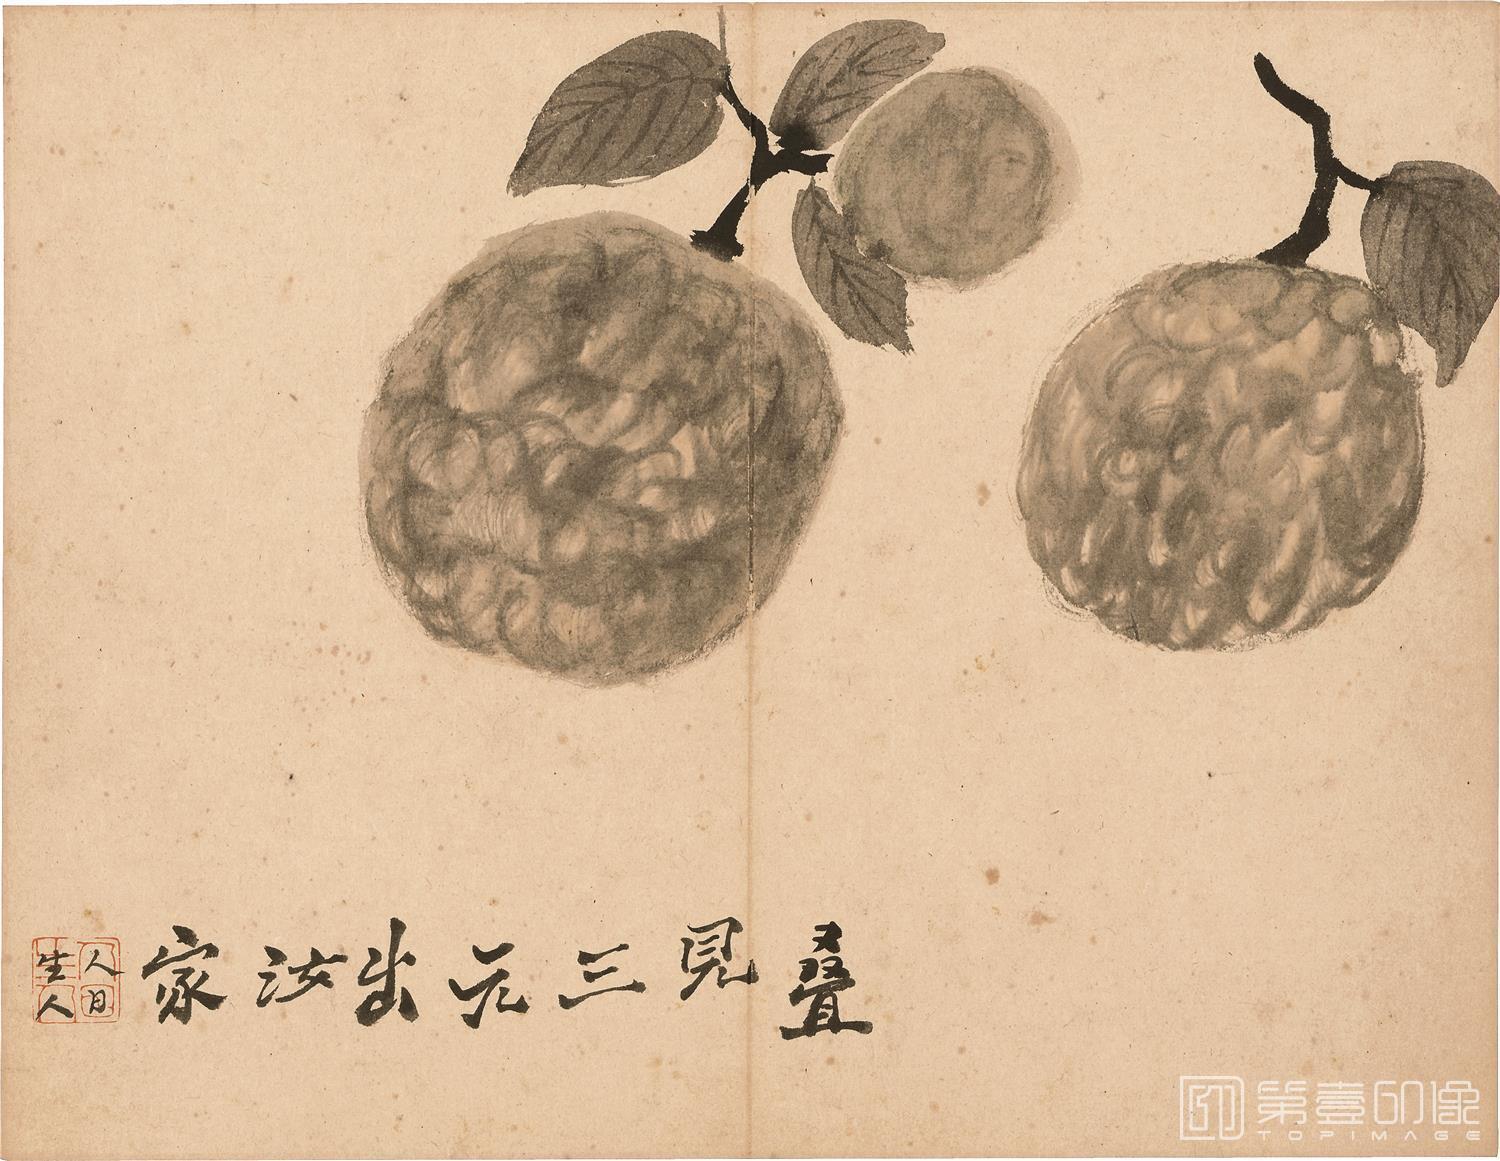 叠見三元出汝家
人日生人
第壹印像
TOPIMAGE